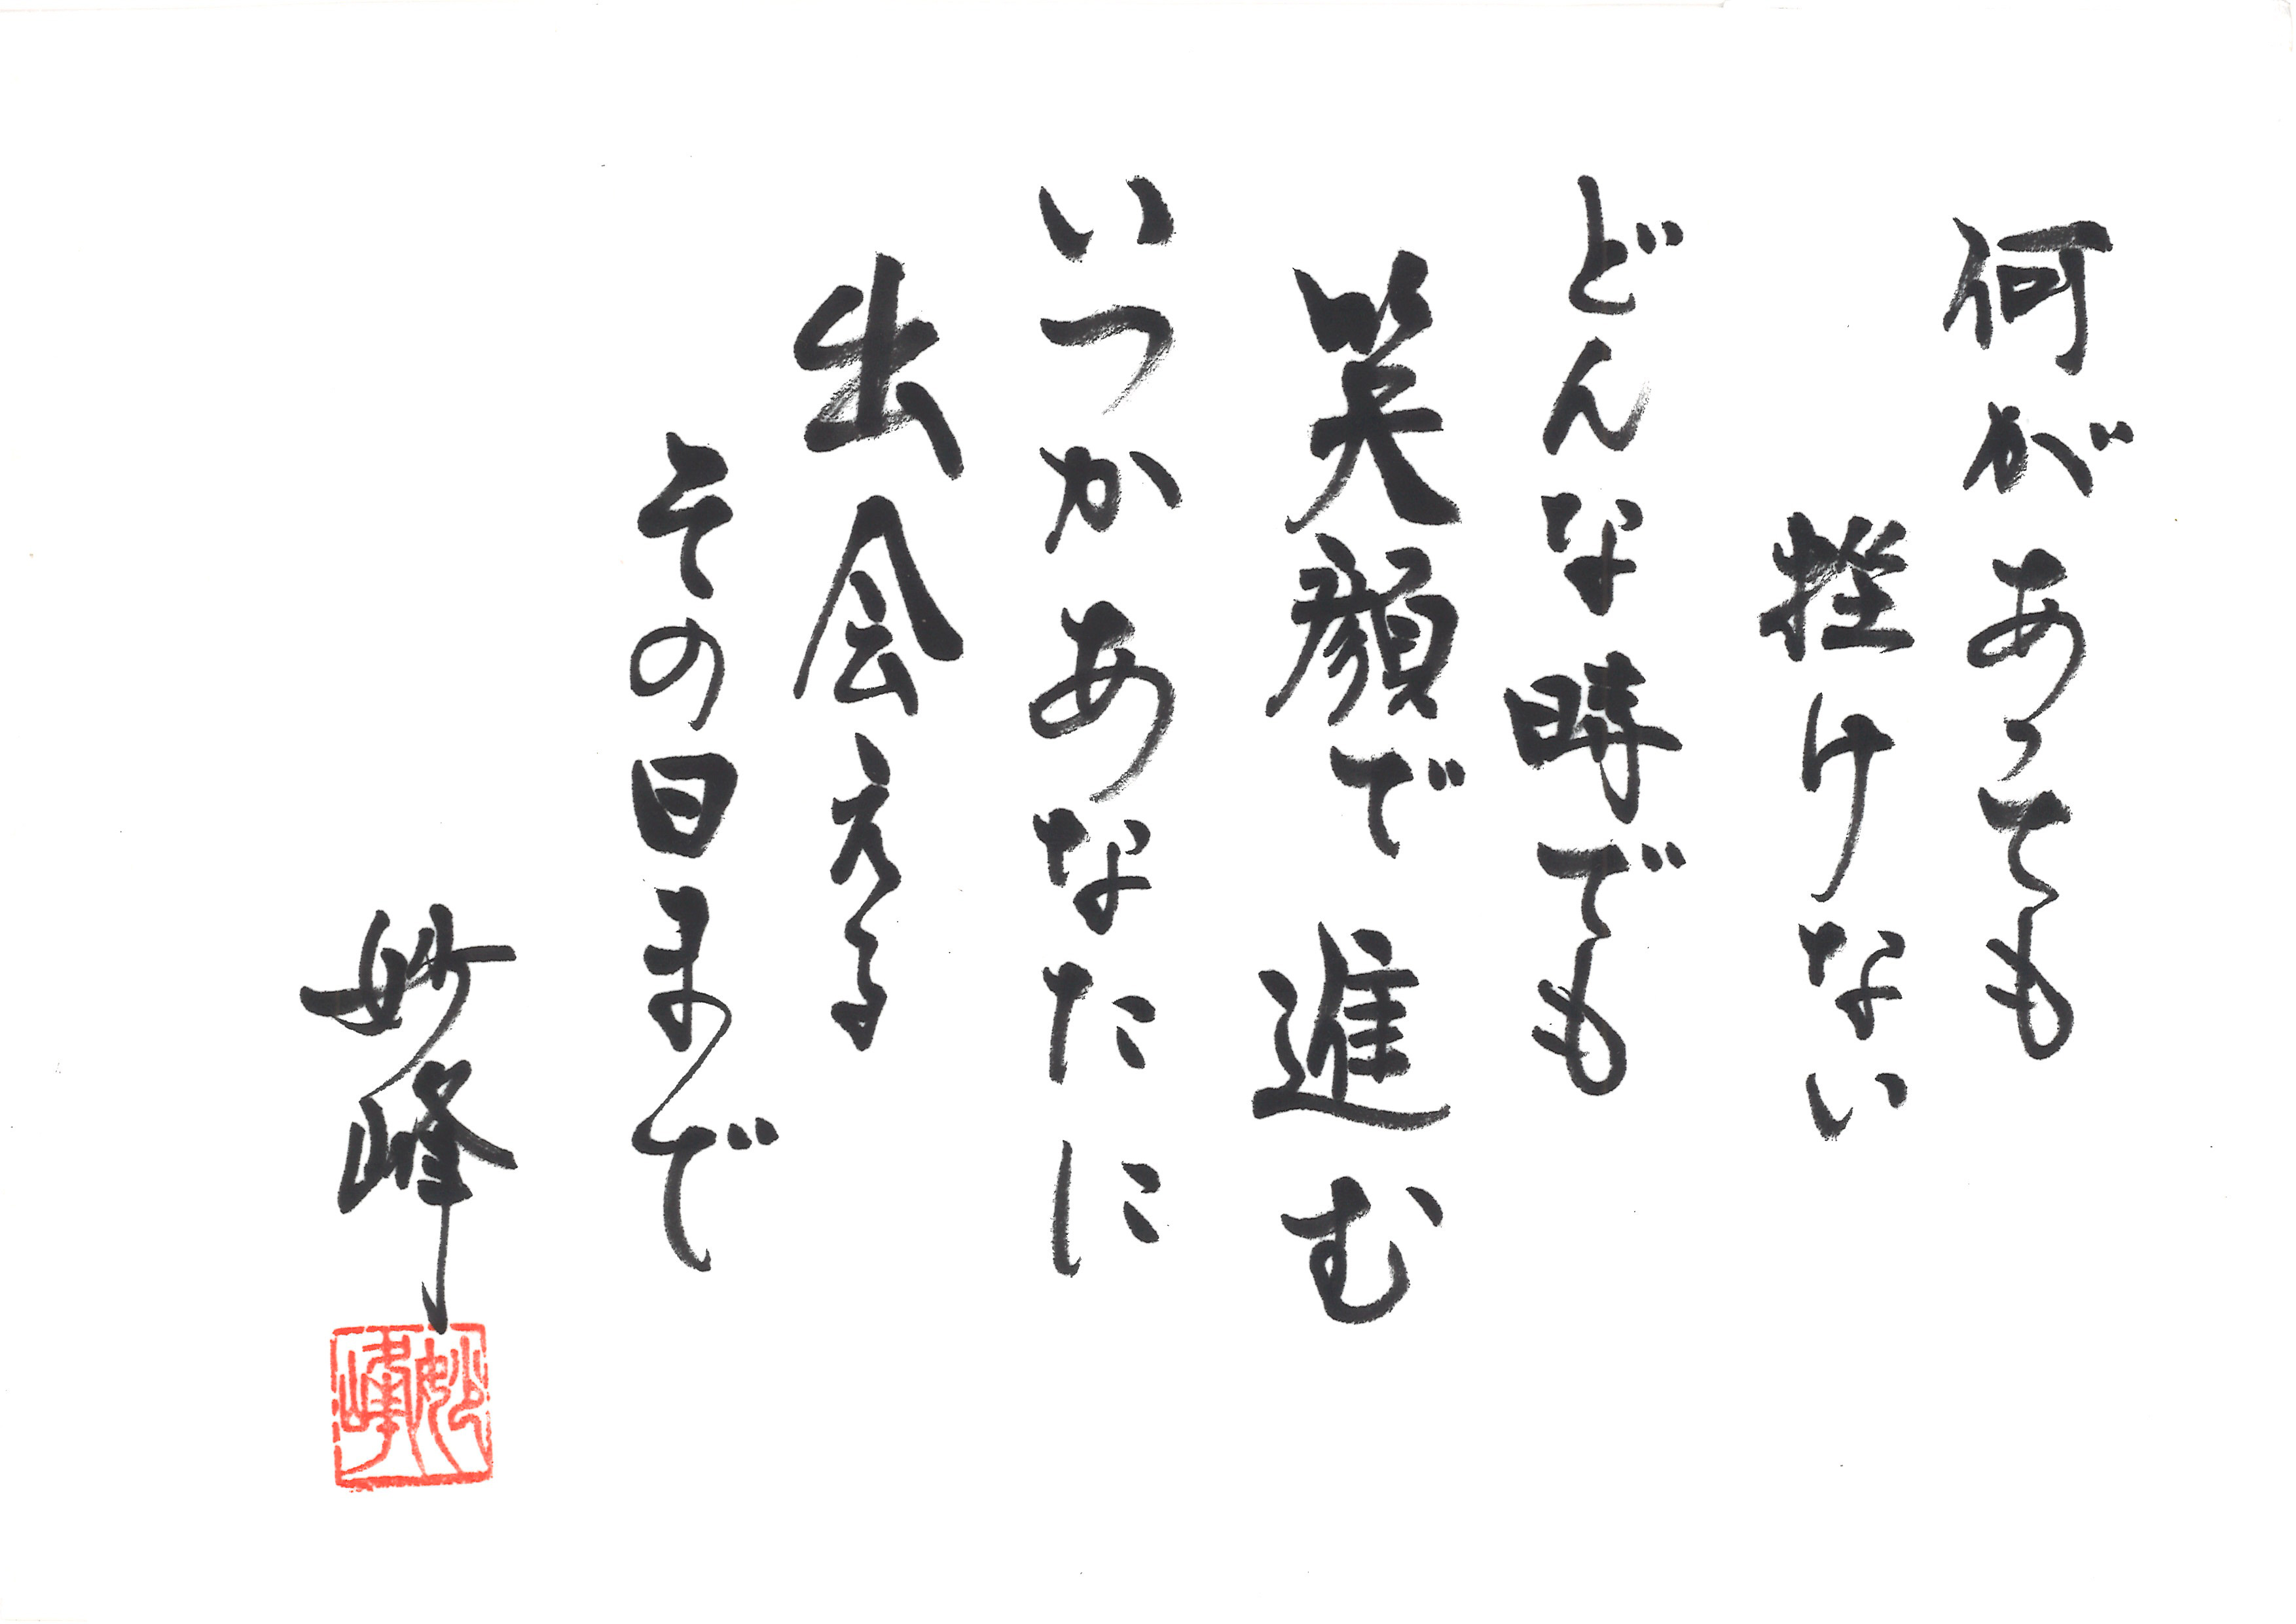 何があっても
挫けない
どんな時でも
笑顔で進む
いつかあなたに
出会える
その日まで
妙峰
妙峰